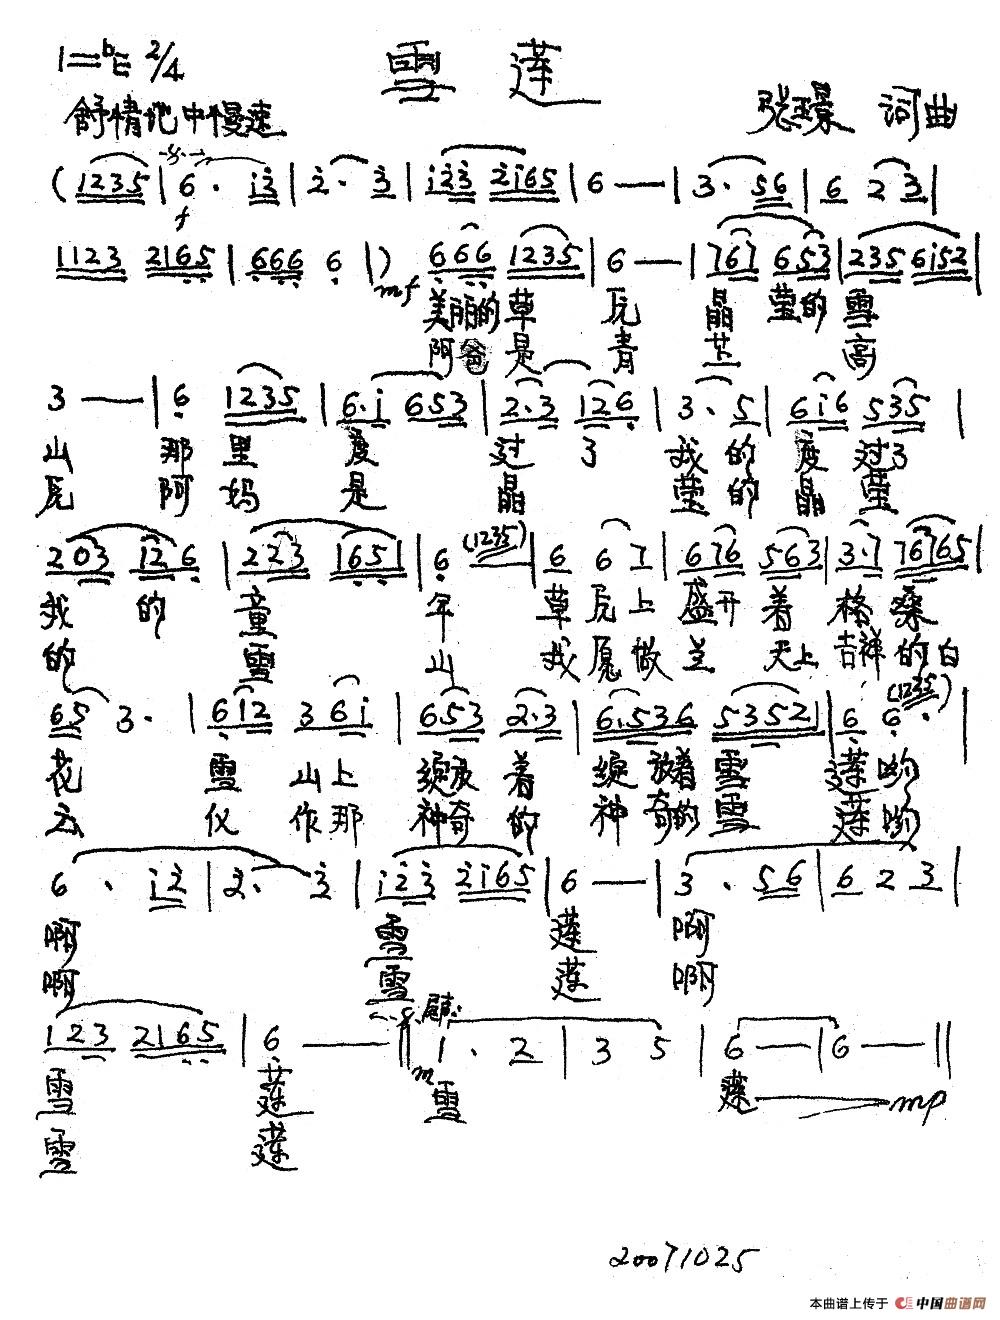 1=♭E 2/4
雪 莲
舒情地中慢速
词曲
( 1235 | 6 · i2 | 2 · 3 | i23 2i65 | 6 — | 3 · 56 | 6 2 3 |
f
1123 2165 | 666 6 | ) 666 1235 | 6 — | 767 653 | 235 6i52 |
mf
美丽的草 原 晶 莹的 雪
阿爸 是 青 高
3 — | 6 1235 | 6·i 653 | 2·3 126 | 3 · 5 | 6i6 535 |
山 那 里 度 过 了 我 的 度 过了
原 阿 妈 是 晶 莹 的 晶 莹
203 126 | 223 1651 | 6 — (1235) | 6 6 7 | 676 563 | 3·7 76765 |
我 的 童 年 草 原 上 盛开 着 格 桑
的 雪 山 我 愿 做 兰 天上 吉祥 的白
65 3· | 612 3 6i | 653 2·3 | 6·536 5352 | 6 6· (1235) |
花 雪 山上 绽放 着 绽 放着 雪 莲 哟
云 仪 作那 神奇 的 神 奇的 雪 莲 哟
6 · i2 | 2· 3 | i23 2i65 | 6 — | 3 · 56 | 6 2 3 |
啊 雪 莲 啊
啊 雪 莲 啊
123 2165 | 6 — || 1 · 2 | 3 5 | 6 — | 6 — ||
雪 莲 雪 莲 mp
雪 莲
20071025
本曲谱上传于 中国曲谱网